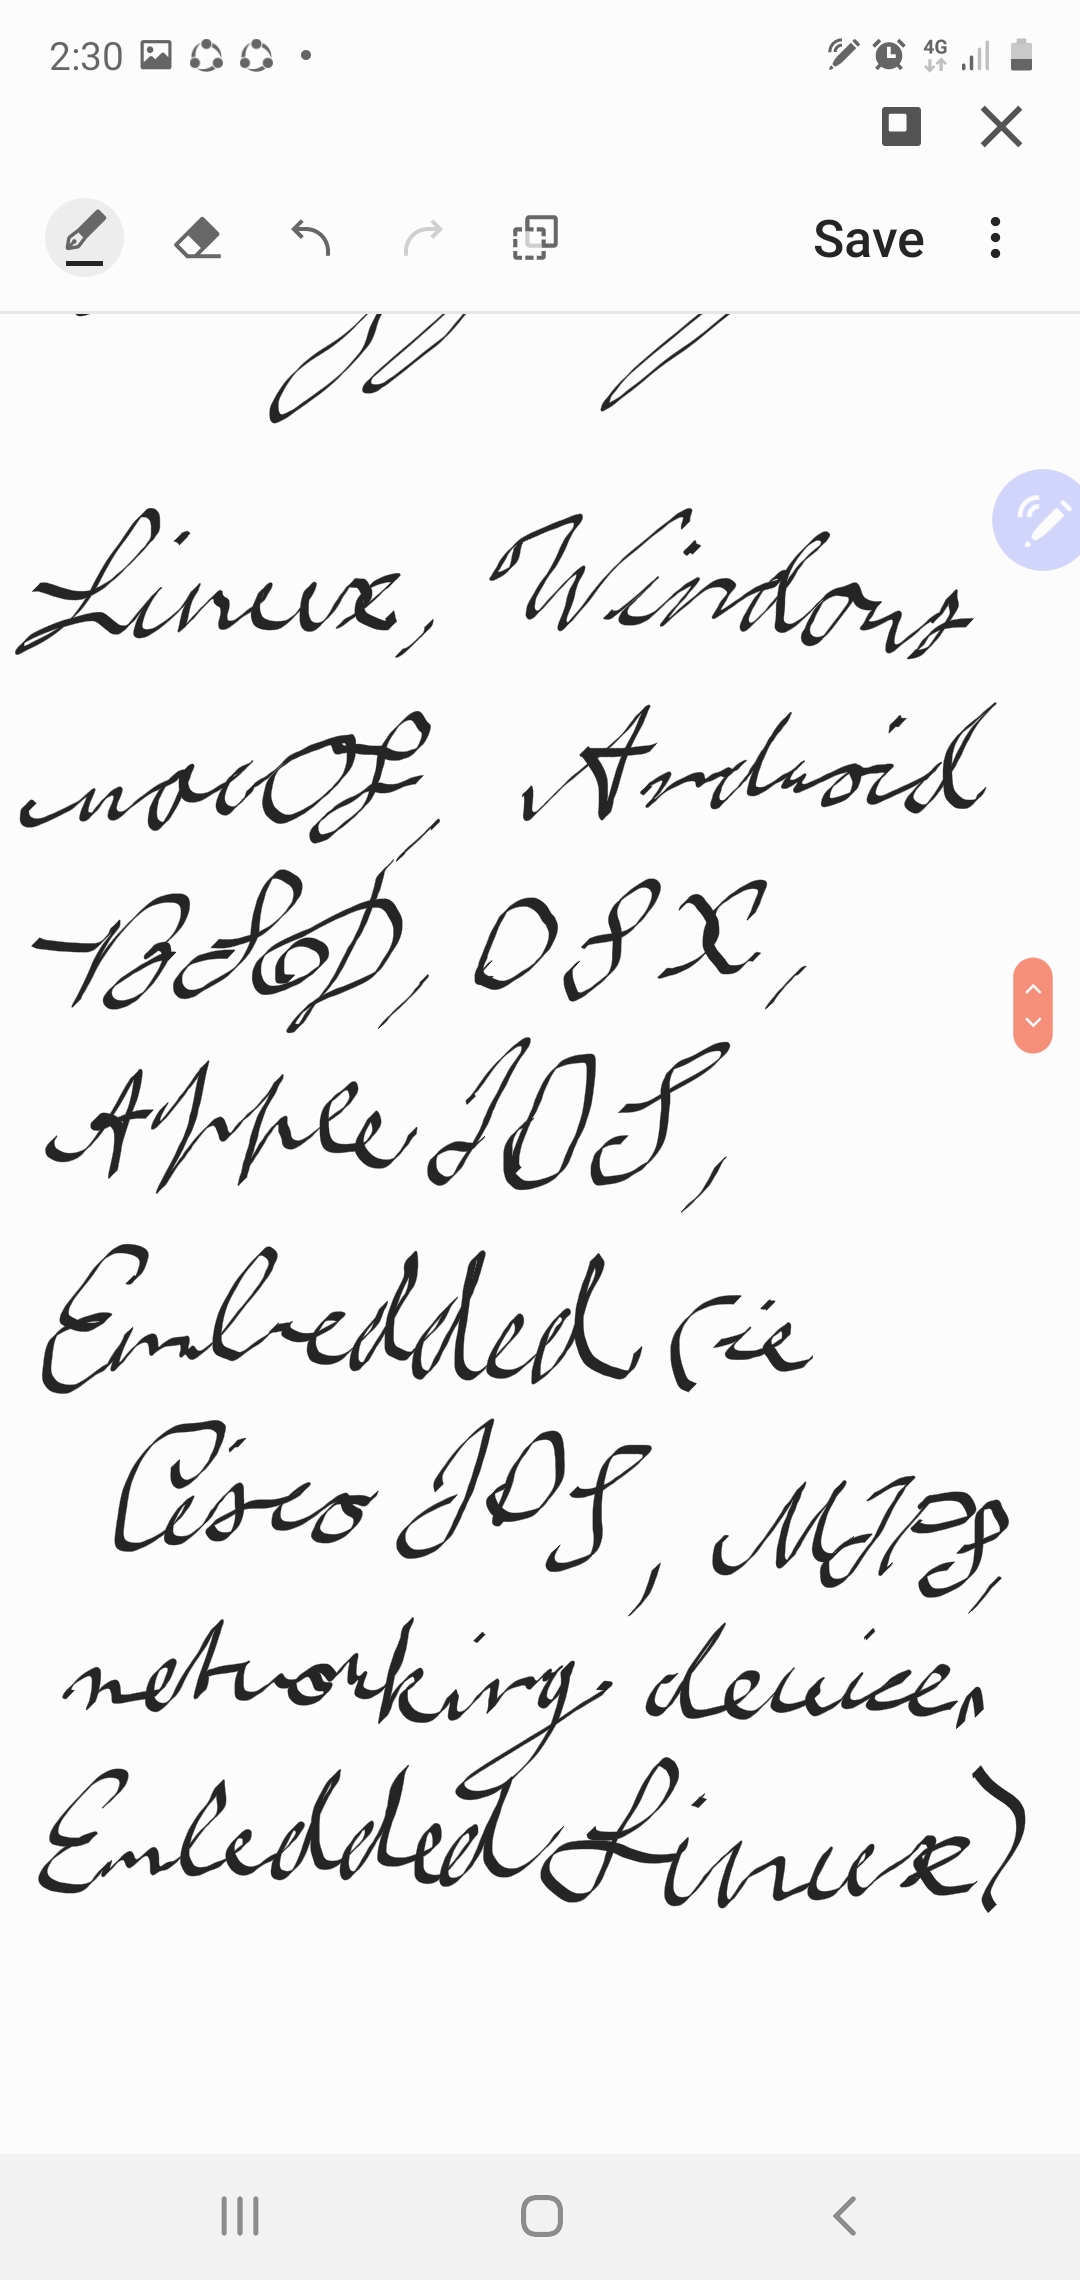 2:30 4G
Save
Linux, Windows
macOS, Android
BSD, OSX,
Apple IOS,
Embedded (ie
Cisco IOS, MIPS,
networking devices
Embedded Linux)